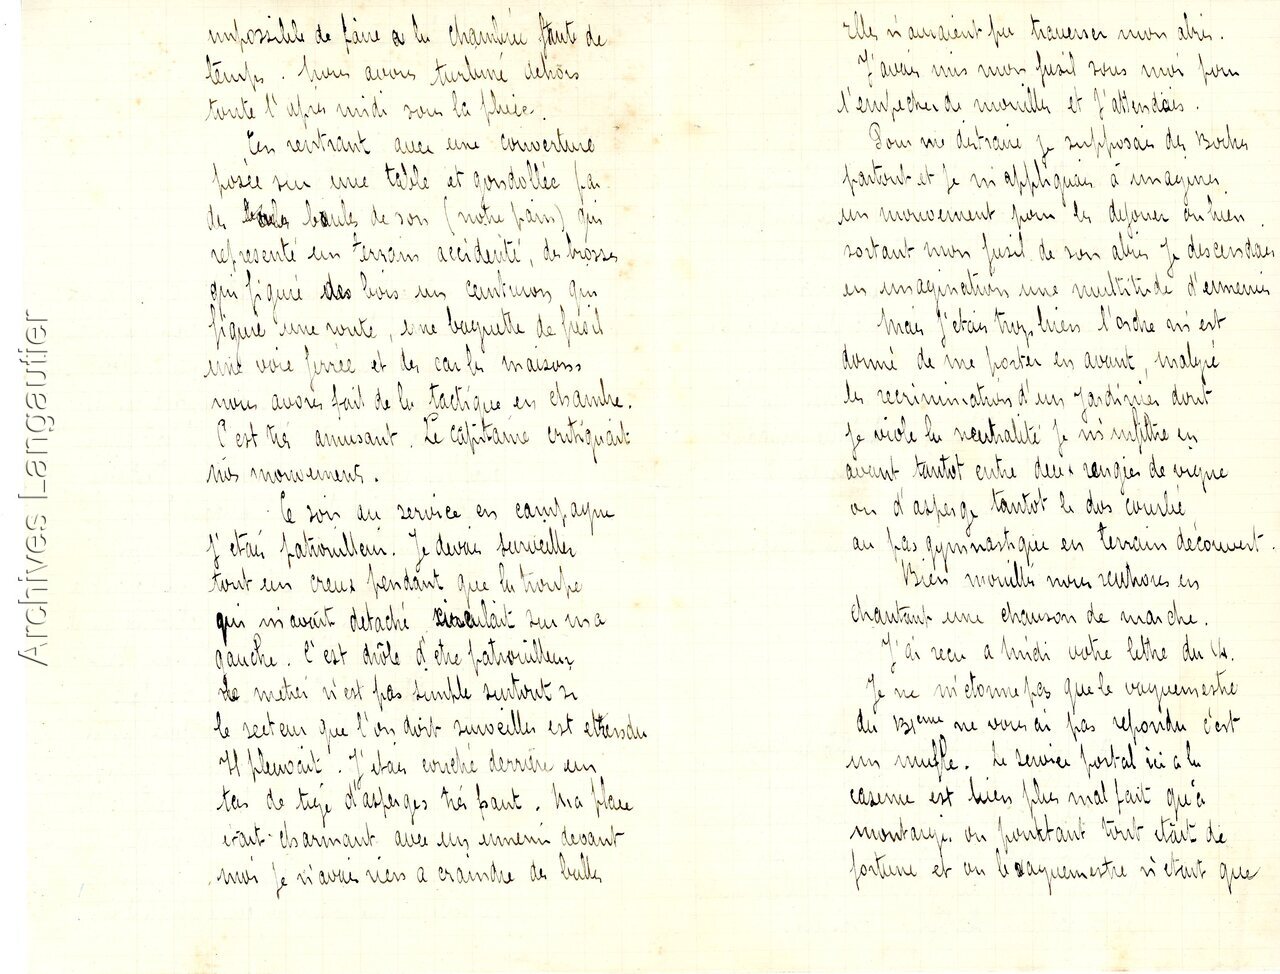 impossible de faire a la chambrée faute de
temps. Nous avons turbiné dehors
toute l'apres midi sous la pluie.
En rentrant avec une couverture
posée sur une table et gondollée par
des boules de son (notre pain) qui
represente un terrain accidenté, des brosses
qui figure des bois un ceinturon qui
figure une route, une baguette de fusil
une voie ferrée et des cartes maisons
nous avons fait de la tactique en chambre.
C'est trés amusant. Le capitaine critiquait
nos mouvements.
Ce soir au service en campagne
j'etais patrouilleur. Je devais surveiller
tout un creux pendant que la troupe
qui m'avait detaché circulait sur ma
gauche. C'est drôle d'etre patrouilleur
Le metier n'est pas simple surtout si
le secteur que l'on doit surveiller est etendu
Il pleuvait. J'etais couché derrière un
tas de tige d'asperges trés haut. Ma place
etait charmant avec un ennemi devant
moi je n'avais riens a craindre des balles
Elles n'auraient pu traverser mon abris.
J'avais mis mon fusil sous moi pour
l'empecher de mouiller et j'attendais.
Pour me distraire je supposais des Boches
partout et je m'appliquais à imaginer
un mouvement pour les dejouer ou bien
sortant mon fusil de son abris je descendais
en imagination une multitude d'ennemis
Mais j'etais trop bien l'ordre m'est
donné de me porter en avant, malgré
les recriminations d'un jardinier dont
je viole la neutralité je m'infiltre en
avant tantot entre deux rangées de vigne
ou d'asperge tantot le dos courbé
au pas gymnastique en terrain découvert.
Bien mouillés nous rentrons en
chantant une chanson de marche.
J'ai recu a midi votre lettre du 4.
Je ne m'etonne pas que le vaguemestre
du 13eme ne vous ai pas repondu c'est
un mufle. Le service postal ici a la
caserne est bien plus mal fait qu'à
montargis ou pourtant tout etait de
fortune et ou le vaguemestre n'etait que
Archives Langautier